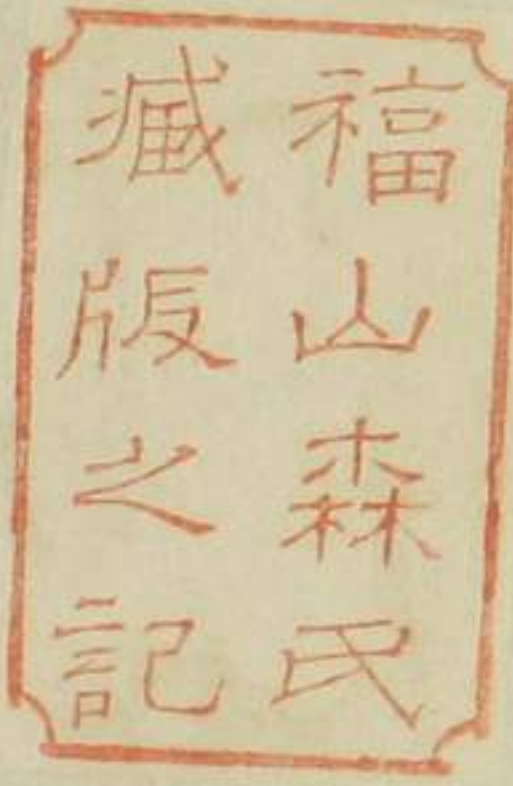 福山森氏
藏版之記